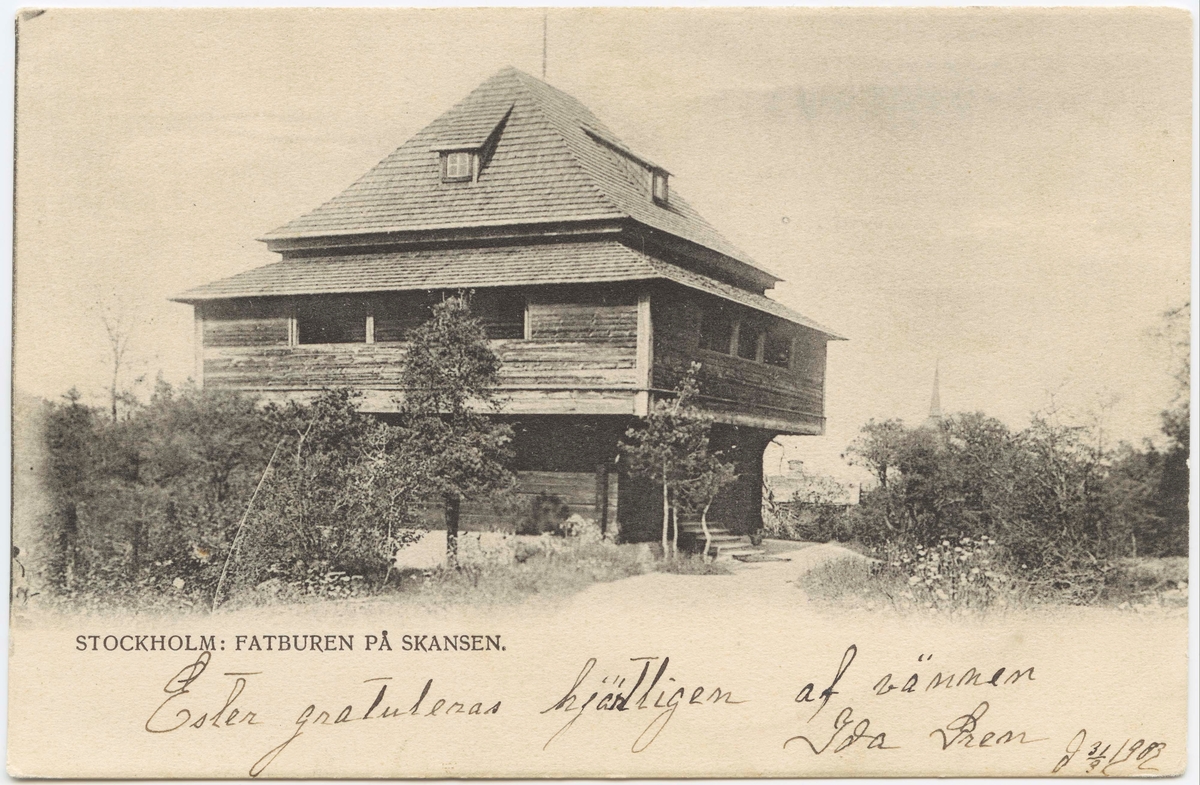 STOCKHOLM: FATBUREN PÅ SKANSEN.
Ester gratuleras hjärtligen af vännen
Ida Gren
31/3 1903